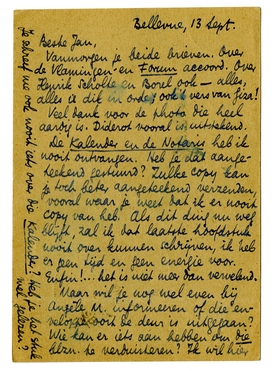 Bellevue, 13 Sept.
Beste Jan,
Vanmorgen je beide brieven. Over
de Vlamingen en Forum accoord. Over
Henrik Scholte en Borel ook — alles,
alles is dit in orde, ook 't vers van Gr.!
Veel dank voor de photo die heel
aardig is. Diderot vooral is uitstekend.
De Kalender en de Notaris heb ik
nooit ontvangen. Heb je dat aange-
teekend gestuurd? Zulke copy kan
je toch beter aangeteekend verzenden,
vooral waar je weet dat ik er nooit
copy van heb! Als dit ding nu weg
blijft, zal ik dat laatste hoofdstuk
nooit over kunnen schrijven, ik heb
er geen tijd en geen energie voor.
Enfin!... het is niet meer dan vervelend.
Waar wil je nog wel even bij
Angèle M. informeeren of die en-
veloppe ooit de deur is uitgegaan?
Wie kan er iets aan hebben om die
blzn. te verduisteren? Ik wil hier
Je schreef me ook nooit iets over die Kalender? Heb je het stuk
wel gelezen?